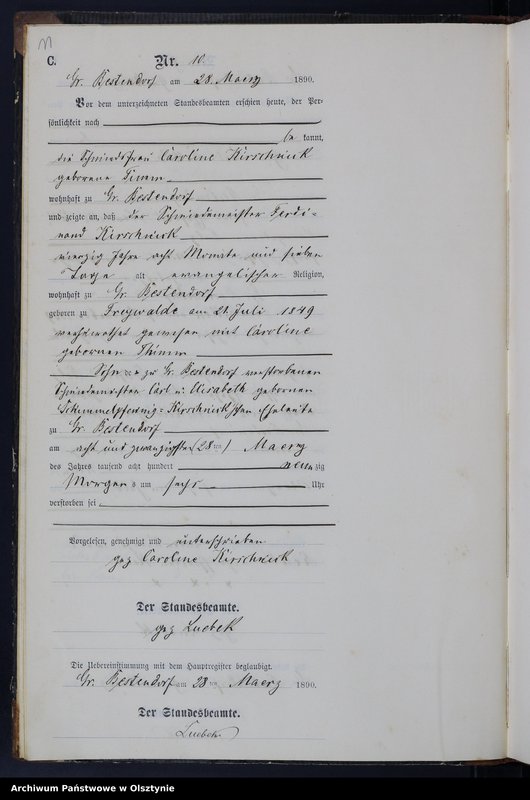 C.
Nr. 10.
Gr. Bestendorf am 28. Maerz 1890.
Vor dem unterzeichneten Standesbeamten erschien heute, der Per-
sönlichkeit nach
be kannt,
die Schmiedsfrau Caroline Kirschnick
geborene Timm
wohnhaft zu Gr. Bestendorf
und zeigte an, daß der Schmiedemeister Ferdi-
nand Kirschnick
vierzig Jahre acht Monate und sieben
Tage alt evangelischer Religion,
wohnhaft zu Gr. Bestendorf
geboren zu Freywalde am 21 Juli 1849
verheirathet gewesen mit Caroline
geborenen Thimm
Sohn zu Gr. Bestendorf verstorbenen
Schmiedemeister Carl u. Elisabeth geborenen
Schimmelpfennig-Kirschnick'schen Eheleute
zu Gr. Bestendorf
am acht und zwanzigsten (28ten) Maerz
des Jahres tausend acht hundert neun zig
Morgens um sechs Uhr
verstorben sei.
Vorgelesen, genehmigt und unterschrieben
gez Caroline Kirschnick
Der Standesbeamte.
gez Luebek
Die Uebereinstimmung mit dem Hauptregister beglaubigt.
Gr. Bestendorf am 28ten Maerz 1890.
Der Standesbeamte.
Luebek
Archiwum Państwowe w Olsztynie